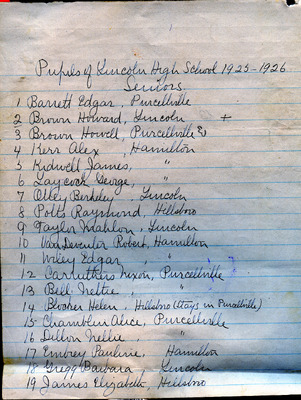 Pupils of Lincoln High School 1925-1926
Seniors.
1 Barrett Edgar, Purcellville
2 Brown Howard, Lincoln +
3 Brown Howell, Purcellville
4 Kerr Alex, Hamilton
5 Kidwell James, "
6 Laycock George, "
7 Otley Berkeley, Lincoln
8 Potts Raymond, Hillsboro
9 Taylor Mahlon, Lincoln
10 Van Deventer Robert, Hamilton
11 Wiley Edgar, "
12 Carruthers Nixon, Purcellville
13 Bell Nettie, "
14 Blooker Helen, Hillsboro (Stays in Purcellville)
15 Chamblin Alice, Purcellville
16 Dillon Nellie, "
17 Embrey Pauline, Hamilton
18 Gregg Barbara, Lincoln
19 James Elizabeth, Hillsboro